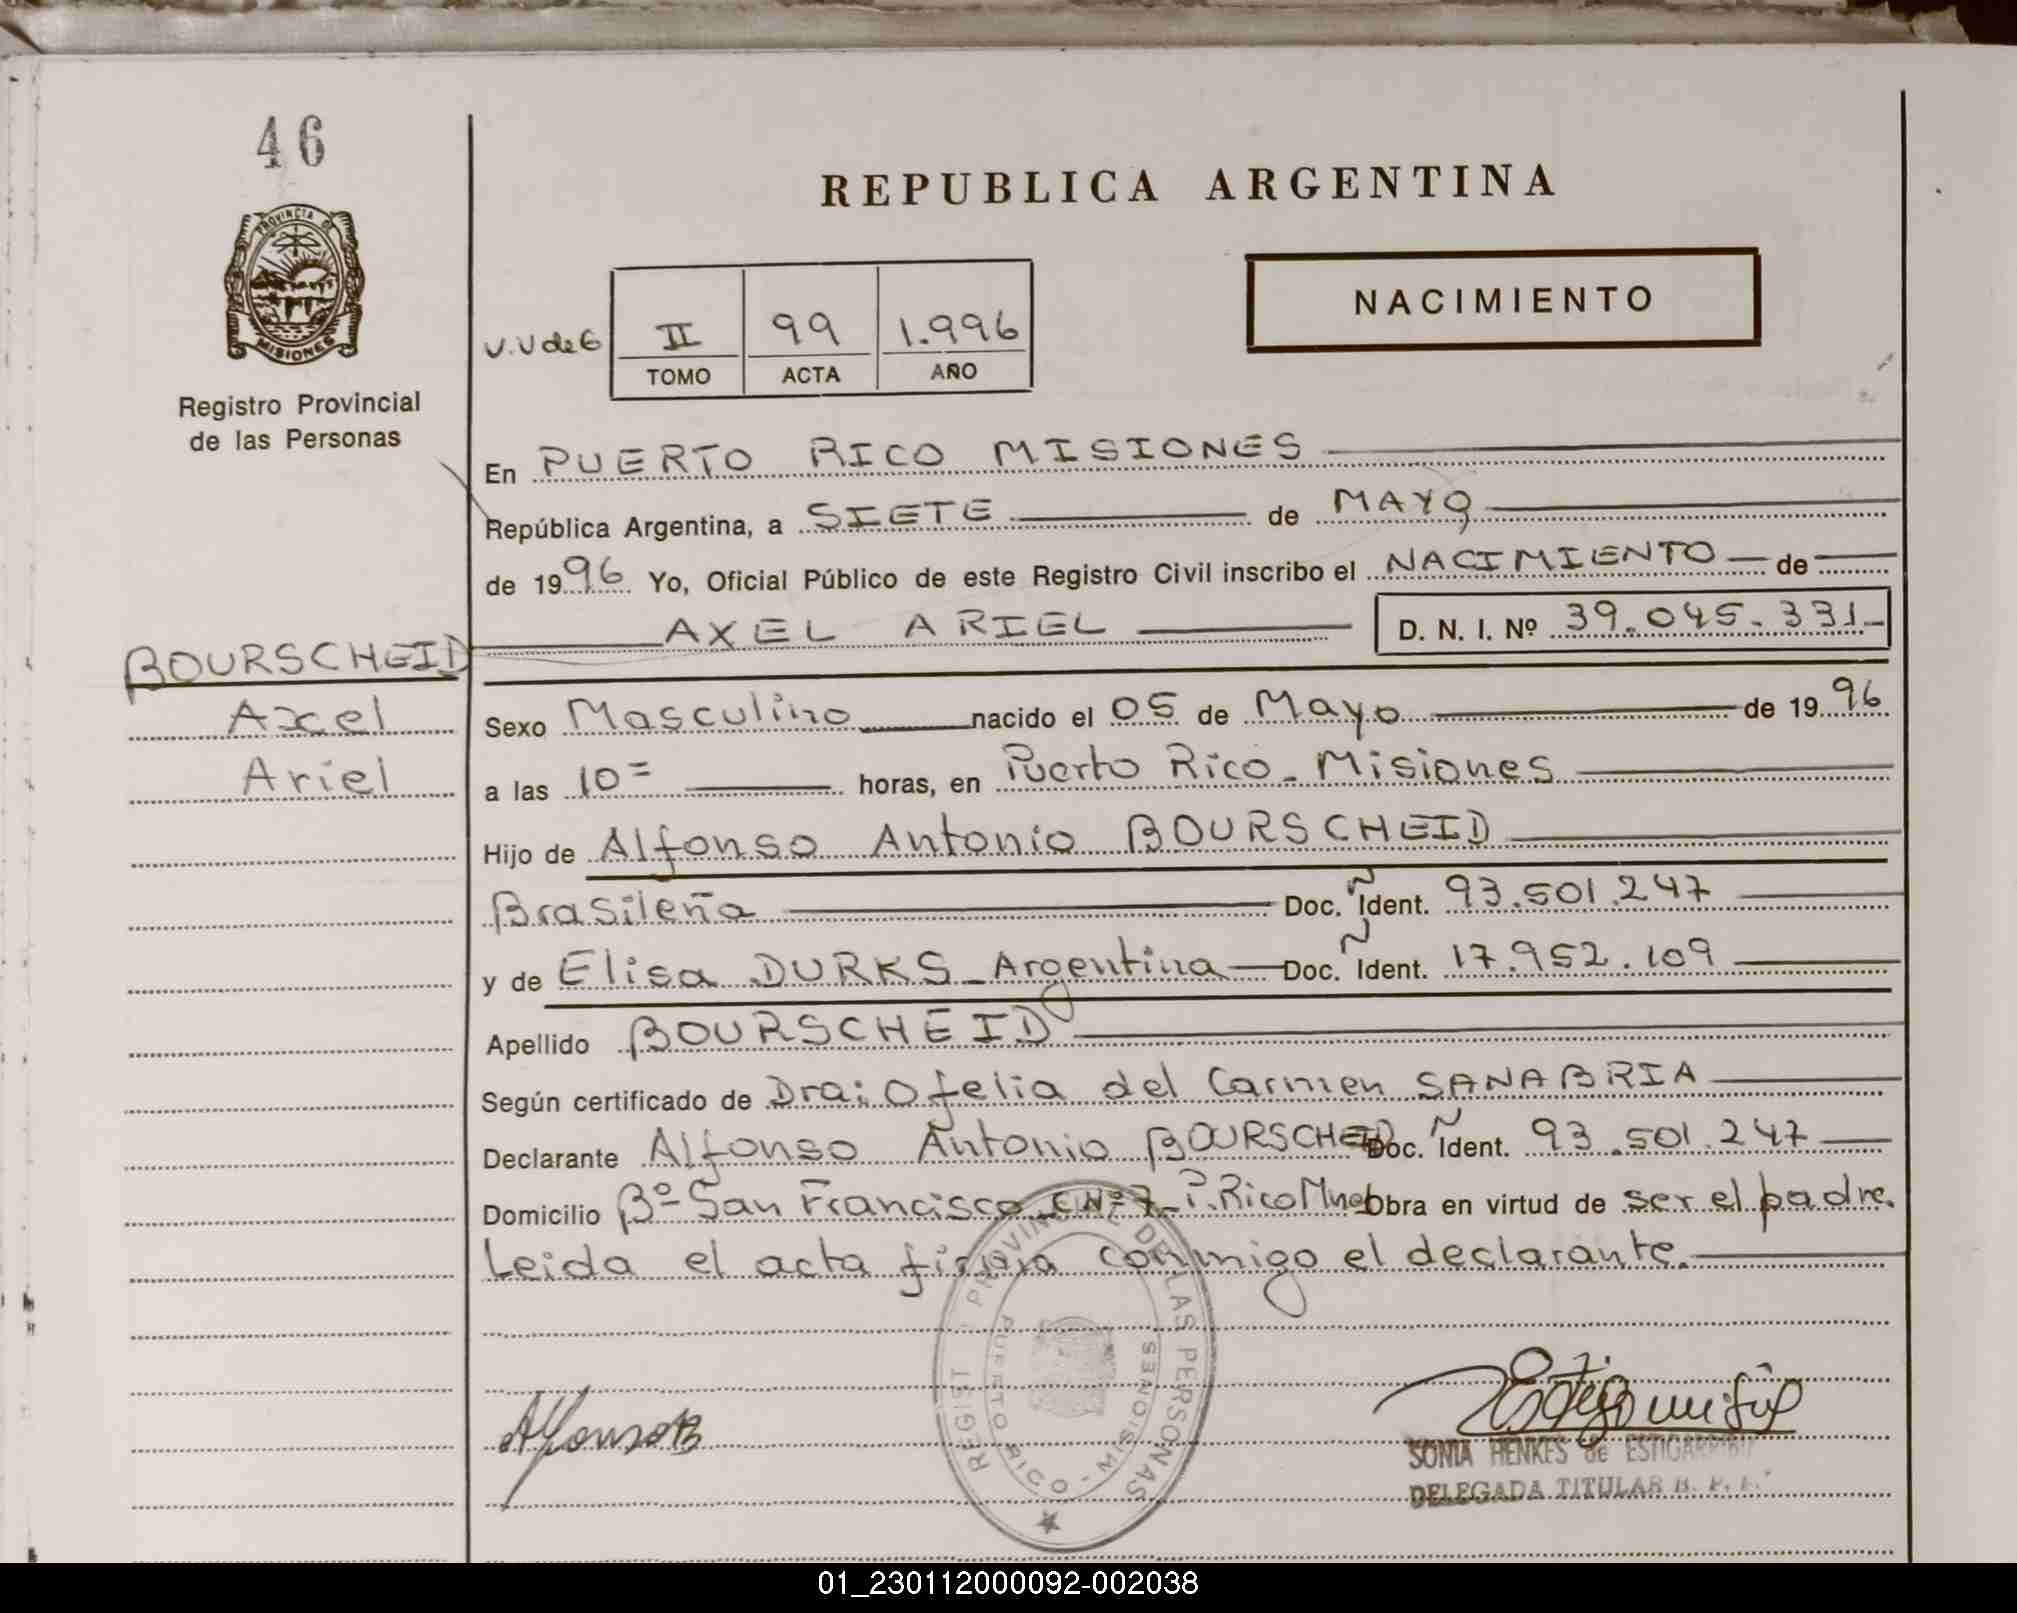 46
REPUBLICA ARGENTINA
PROVINCIA DE
MISIONES
NACIMIENTO
V.V de 6 II 99 1.996
TOMO ACTA AÑO
Registro Provincial
de las Personas
En PUERTO RICO MISIONES
República Argentina, a SIETE de MAYO
de 1996 Yo, Oficial Público de este Registro Civil inscribo el NACIMIENTO de
AXEL ARIEL D. N. I. Nº 39.045.331-
BOURSCHEID
Axel
Ariel
Sexo Masculino nacido el 05 de Mayo de 1996
a las 10= horas, en Puerto Rico - Misiones
Hijo de Alfonso Antonio BOURSCHEID
Brasileña Doc. Ident. 93.501.247
y de Elisa DURKS - Argentina Doc. Ident. 17.952.109
Apellido BOURSCHEID
Según certificado de Dra: Ofelia del Carmen SANABRIA
Declarante Alfonso Antonio BOURSCHEID Doc. Ident. 93.501.247
Domicilio Bº San Francisco C Nº 7 - P. Rico Mnes Obra en virtud de ser el padre.
Leida el acta firma conmigo el declarante.
REGIST PROVINCIAL DE LAS PERSONAS
PUERTO RICO - MISIONES
Alfonso B
SONIA HENKES de ESTIGARRIBIA
DELEGADA TITULAR R. P. P.
01_230112000092-002038